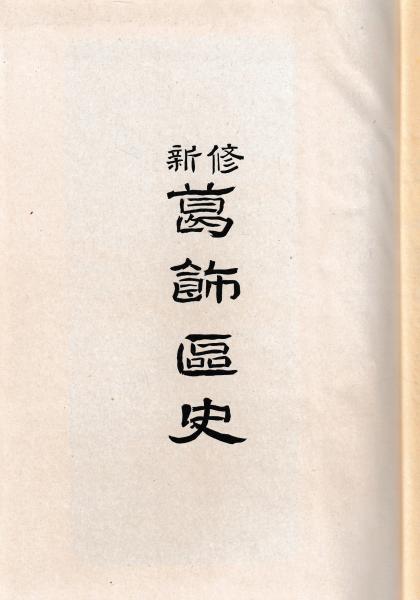 修新
葛飾區史